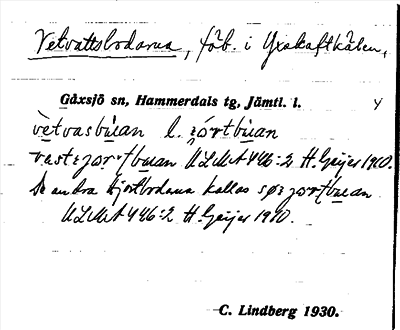 Vetvattsbodarna, fäb. i Yxskaftkälen,
Gåxsjö sn, Hammerdals tg, Jämtl. l. Y
vètvasbùan l. jórtbùan
vast jortbuan ULMA 446:2 H. Geijer 1910.
De andra Hjortbodarna kallas sør jortbuan
ULMA 446:2 H. Geijer 1910.
C. Lindberg 1930.